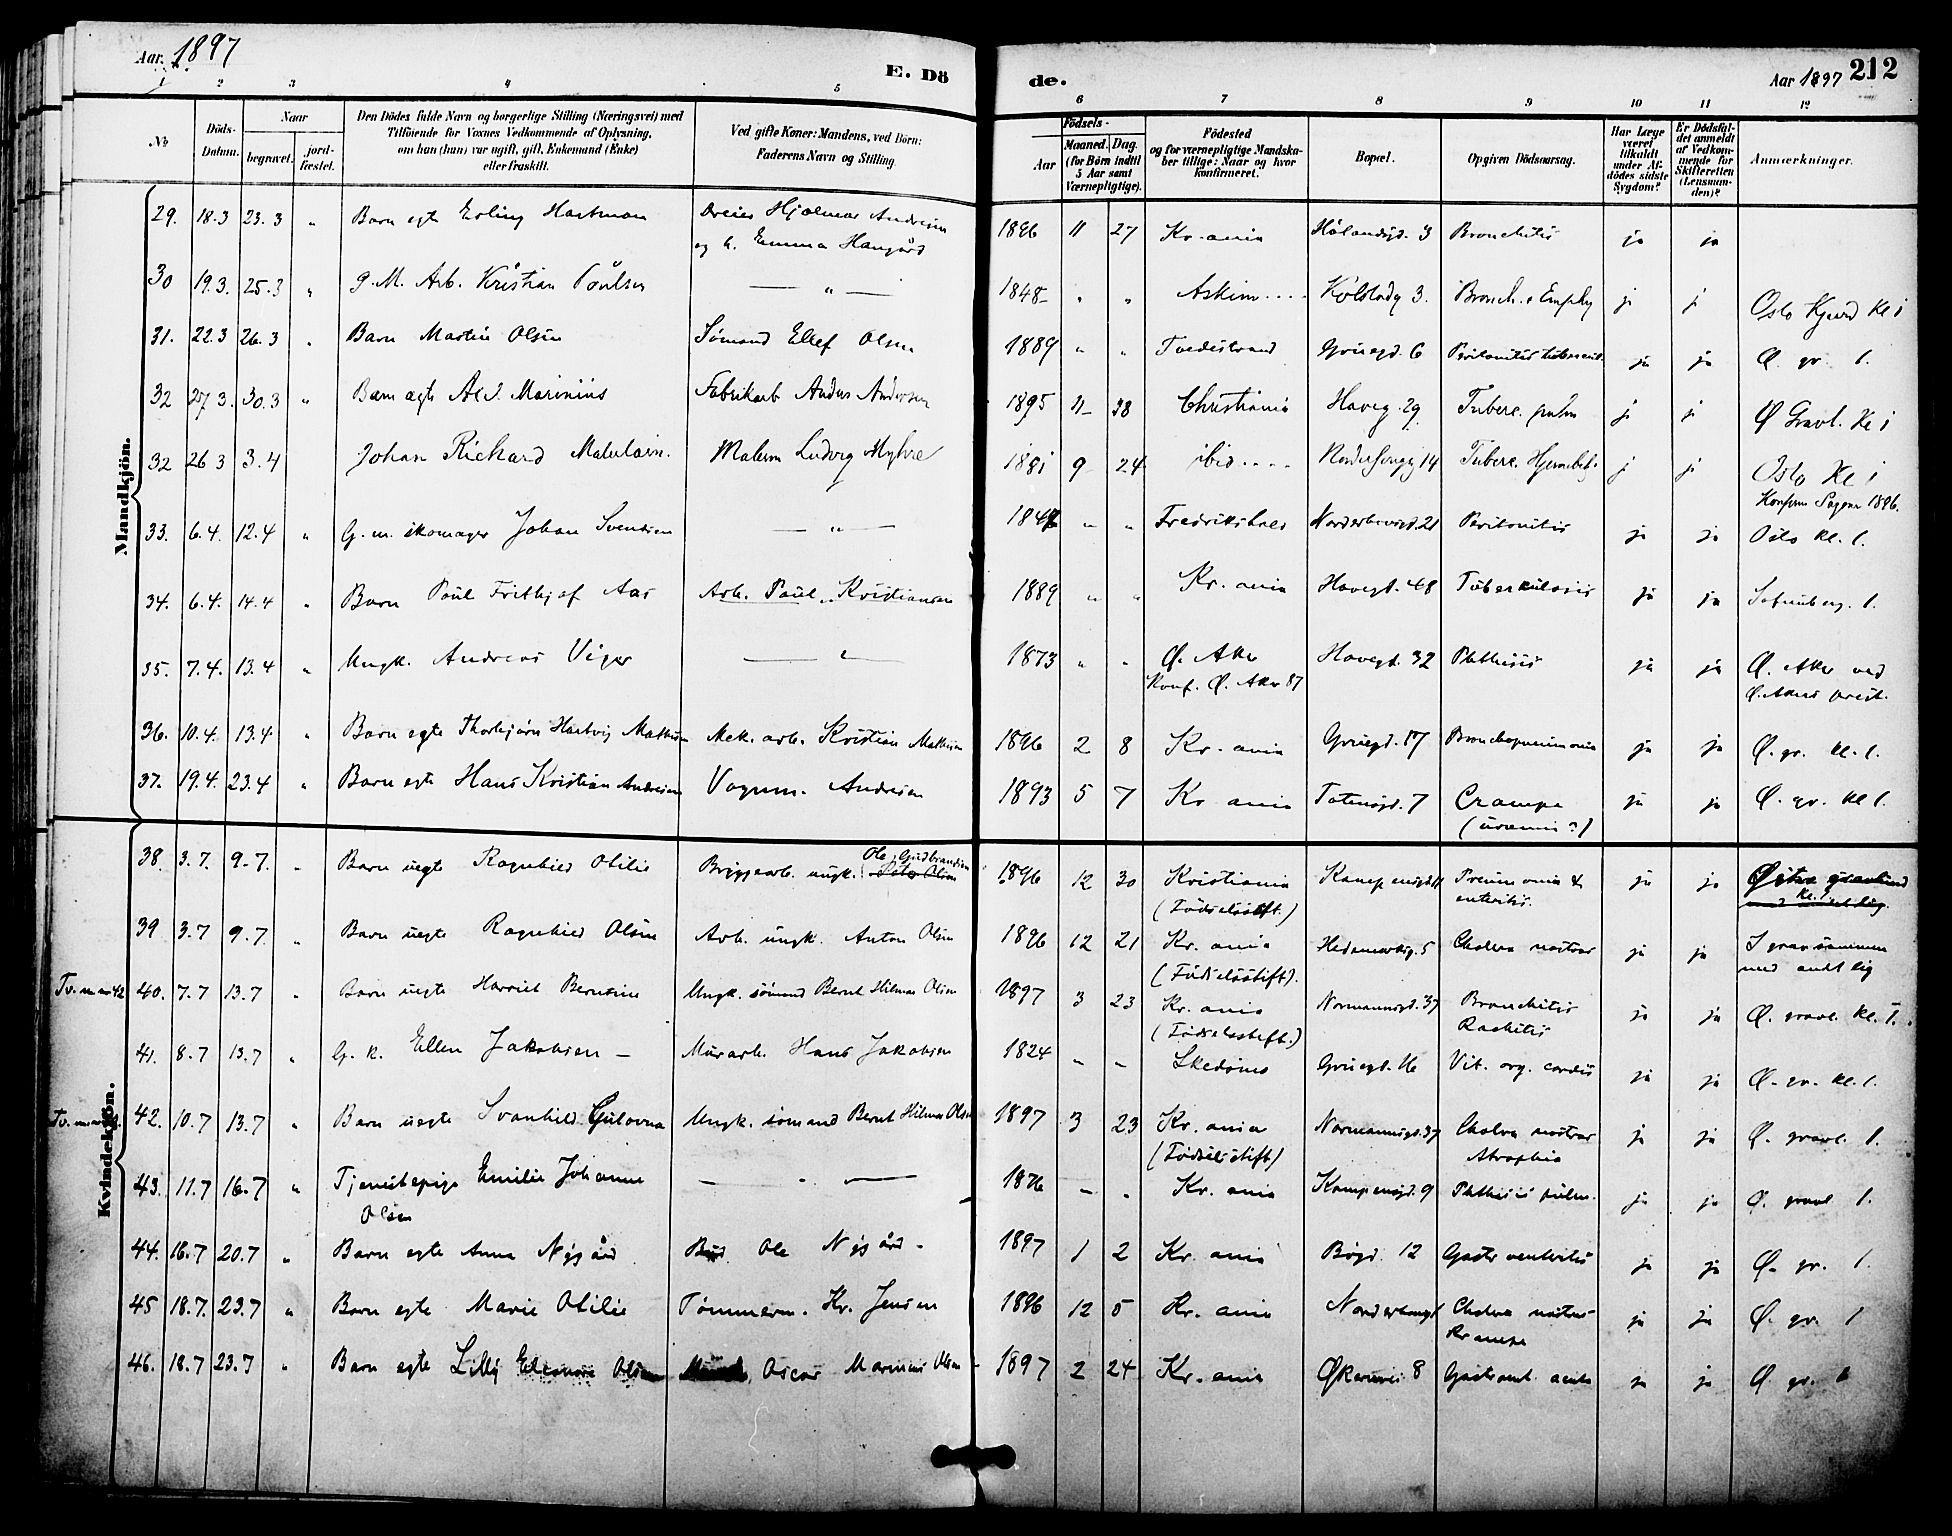 Aar 1897
E. Dö
de.
Aar 1897 212
1 2 3 4 5 6 7 8 9 10 11 12
No
Döds-
Datum.
Naar
begravet.
jord-
fæstet.
Den Dödes fulde Navn og borgerlige Stilling (Næringsvei) med
Tilföiende for Voxnes Vedkommende af Oplysning,
om han (hun) var ugift, gift, Enkemand (Enke)
eller fraskilt.
Ved gifte Koner: Mandens, ved Börn:
Faderens Navn og Stilling.
Födsels-
Aar
Maaned. Dag.
(for Börn indtil
5 Aar samt
Værnepligtige).
Födested
og for værnepligtige Mandska-
ber tillige: Naar og hvor
konfirmeret.
Bopæl.
Opgiven Dödsaarsag.
Har Læge
været
tilkaldt
under Af-
dödes sidste
Sygdom?
Er Dödsfal-
det anmeldt
af Vedkom-
mende for
Skifteretten
(Lensman-
den)?
Anmærkninger.
Mandkjön.
29. 18.3 23.3 " Barn egte Erling Hartman Dreier Hjalmar Andresen 1896 11 27 Kr.ania 3 Bronchitis ja ja
og h. Emma
30 19.3. 25.3 " g.M. Arb. Kristian Poulsen — " — 1848 " " Askim .... 3. Bronch. & Emphy j j Oslo Kl i
31. 22.3 26.3 " Barn Martin Olsen Sømand Ellef Olsen 1889 " " Tvedestrand Gruegd. 6 ja ja Ø. gr. 1.
32 27 3. 30.3 " Barn ægte Marinius Fabrikarb Anders Andersen 1895 11 Christiania Haveg. 29 Tuberc. pulm j j Ø Gravl. Kl i
32 26 3 3.4 Johan Richard Malerlærl. Malerm Ludvig Myhre 1881 9 24 ibid .... 14 Tuberc. j j Oslo Kl i
Konfirm Sagene 1896.
33. 6.4. 12.4 " G.m. skomager Johan Svendsen — " — " " Fredrikshald 21 Peritonitis ja ja Oslo kl. 1.
34. 6.4. 14.4 " Barn Poul Frithjof Aas Arb. Paul Kristiansen 1889 " " Kr.ania Havegd. 48 Tuberkulosis ja ja 1.
35. 7.4. 13.4 " Ungk. Andreas — " — 1873 " " Ø. Aker Havegd. 32 Phthisis ja ja Ø. Aker ved
Konf. Ø. Aker 87 Ø. Akers prest.
36. 10.4. 13.4 " Barn egte Thorbjørn Hartvig Mathisen Mek. arb. Kristian Mathisen 1896 2 8 Kr.ania Gruegd. 17 Bronchopneumonia ja ja Ø. gr. kl. 1.
37. 19.4. 23.4 " Barn egte Hans Kristian Andresen Vognm. Andresen 1893 5 7 Kr ania Totensgd. 7 Crampe ja ja Ø. gr. kl 1.
(uræmi?)
Kvindekjön.
38. 3.7. 9.7. " Barn uegte Ragnhild Otilie Bryggearb. ungk. Peter Olsen 1896 12 30 Kristiania Kampensgd. 11 Pneumonia & ja ja
Ole Gudbrandsen (Fødselsstift.) enteritis. kl. 1
39 3.7 9.7. " Barn uegte Ragnhild Olsen Arb. ungk. Anton Olsen 1896 12 21 Kr.ania Hedemarksg. 5 Cholera nostras ja ja I grav sammen
(Fødselsstift). med andet lig
Tv. m. nr 42 40. 7.7 13.7 " Barn uegte Harriet Berntine Ungk. sømand Bernt Hilmar Olsen 1897 3 23 Kr.ania Normannsgd. 37 Bronchitis ja ja Ø. gravl. kl. I.
(Fødselsstift.) Rachitis
41. 8.7 13.7 " G. k. Ellen Jakobsen — Murarb. Hans Jakobsen 1824 — — Skedsmo Gruegd. 16 Vit. org. cordis ja ja Ø. gr. kl. 1.
42. 10.7 13.7 " Barn uegte Svanhild Gulovna Ungk. sømand Bernt Hilmar Olsen 1897 3 23 Kr.ania Normannsgd. 37 Cholera nostras ja ja Ø. gravl. 1.
(Fødselsstift) Atrophia
43. 11.7 16.7 " Tjenestepige Emilie Johanne — " — 1876 — " Kr.ania Kampensgd. 9 Phthisis pulm. ja ja Ø. gravl 1.
Olsen
44. 16.7 20.7 " Barn egte Anna Nygård Bud Ole Nygård. 1897 1 2 Kr.ania Bøgd. 12 Gastroenteritis ja ja Ø. gr. 1.
45 18.7. 23.7 " Barn egte Marie Otilie Tømmerm. Kr. Jensen 1896 12 5 Kr.ania Cholera nostras ja ja Ø. gr. 1
Krampe
46. 18.7 23.7 " Barn egte Lilly Eleonore Olsen Oscar Marinius Olsen 1897 2 24 Kr.ania Økernvei 8 Gastroent. acuta ja ja Ø. gr. 1